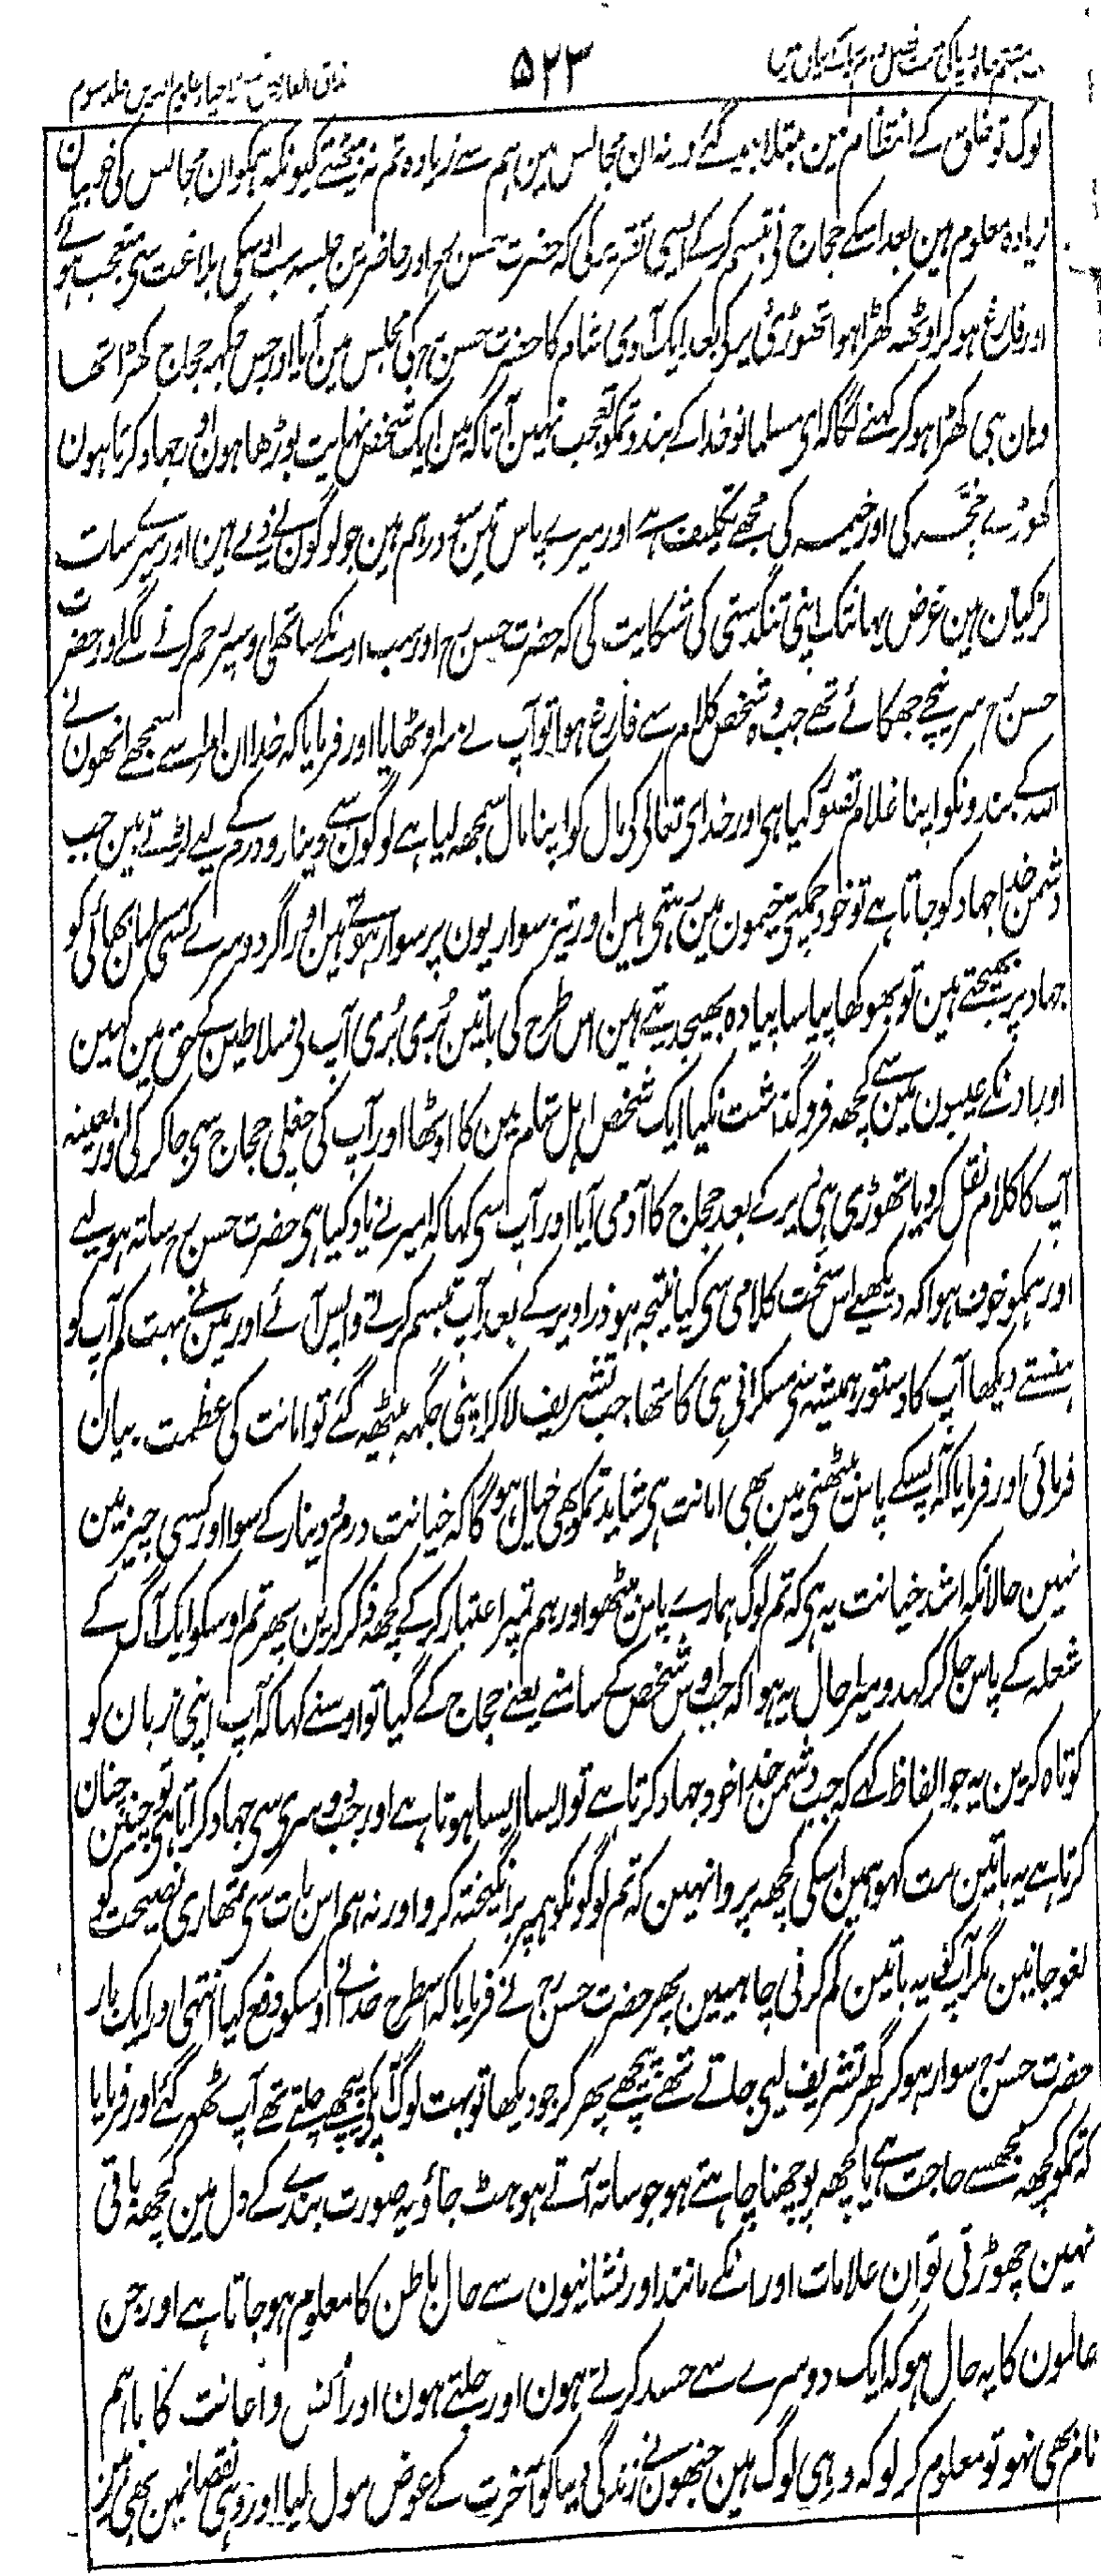 ۵۲۳
مذاق العارفین ترجمہ احیاء علوم الدین جلد سوم
لوگ تو خلق کے انتظام مین مبتلا ہو گئے ورنہ ان مجالس مین ہم سے زیادہ تم نہ بیٹھتے کیونکہ ہمکو ان مجالس کی خوبیان
زیادہ معلوم ہین بعد اسکے حجاج نی تبسم کر کے ایسی تقریر کی کہ حضرت حسن رح اور حاضرین جلسہ سب اوسکی بلاغت سی متعجب ہوئے
اور فارغ ہو کر اوٹھہ کھڑا ہوا تھوڑی دیر کی بعد ایک آدمی شام کا حضرت حسن رح کی مجلس مین آیا اور جس جگہہ حجاج کھڑا تھا
وہان ہی کھڑا ہو کر کہنے لگا کہ ای مسلمانو خدا کے بندو تمکو تعجب نہین آتا کہ مین ایک شخص نہایت بوڑھا ہون اور جہاد کرتا ہون
گھوڑے خچر کی اور خیمہ کی مجھے تکلیف ہے اور میرے پاس تین سو درہم ہین جو لوگون نے دیے ہین اور میرے سات
لڑکیان ہین غرض یہانتک اپنی تنگدستی کی شکایت کی کہ حضرت حسن رح اور سب اونکے ساتھی اوسپر رحم کرنے لگے اور حضرت
حسن رح سر نیچے جھکائے تھے جب وہ شخص کلام سے فارغ ہوا تو آپ نے سر اوٹھایا اور فرمایا کہ خدا ان امرا سے سمجھے انھون نے
اللہ کے بندونکو اپنا غلام تصور کیا ہی اور خدای تعالی کی مال کو اپنا مال سمجھہ لیا ہے لوگون سے دینار و درم کے لیے لڑتے ہین جب
دشمن خدا جہاد کو جاتا ہے تو خود چمکتی خیمون مین رہتی ہین اور تیز سواریون پر سوار ہوتے ہین اور اگر دوسرے کسی مسلمان بھائی کو
جہاد پر بھیجتے ہین تو بھوکھا پیاسا پیادہ بھیجدیتے ہین اس طرح کی باتین بُری بُری آپ نی سلاطین کے حق مین کہین
اور اونکے عیبون مین سے کچھہ فروگذاشت نکیا ایک شخص اہل شام مین کا اوٹھا اور آپ کی چغلی حجاج سی جا کر کی اور بعینہ
آپ کا کلام نقل کر دیا تھوڑی ہی دیر کے بعد حجاج کا آدمی آیا اور آپ سی کہا کہ امیر نے یاد کیا ہی حضرت حسن رح ساتہ ہو لیے
اور ہمکو خوف ہوا کہ دیکھیے اس سخت کلامی سی کیا نتیجہ ہو ذرا دیر کے بعد آپ تبسم کرتے واپس آئے اور مین نے بہت کم آپ کو
ہنستے دیکھا آپ کا دستور ہمیشہ سی مسکرانی ہی کا تھا جب تشریف لا کر اپنی جگہہ بیٹھہ گئے تو امانت کی عظمت بیان
فرمائی اور فرمایا کہ آپسکے پاس بیٹھنی مین بھی امانت ہی شاید تمکو یھی خیال ہو گا کہ خیانت درم و دینار کے سوا اور کسی چیز مین
نہین حالانکہ اشد خیانت یہ ہی کہ تم لوگ ہمارے پاس بیٹھو اور ہم تمپر اعتبار کر کے کچھہ ذکر کرین پھر تم اوسکو ایک آگ کے
شعلہ کے پاس جا کر کہدو میرا حال یہ ہوا کہ جب اوس شخص کے سامنے یعنے حجاج کے گیا تو اوسنے کہا کہ آپ اپنی زبان کو
کوتاہ کرین یہ جو الفاظ کہے کہ جب دشمن خدا خود جہاد کرتا ہے تو ایسا ایسا ہوتا ہے اور جب دوسری سی جہاد کراتا ہی تو چنین چنان
کرتا ہے یہ باتین مت کہو ہمین اسکی کچھہ پروا نہین کہ تم لوگونکو ہمپر برانگیختہ کرو اور نہ ہم اس بات سی تمھاری نصیحت کو
لغو جانین مگر آپکو یہ باتین کم کرنی چاہیین پھر حضرت حسن رح نے فرمایا کہ اسطرح خدا نے اوسکو دفع کیا انتہی اور ایک بار
حضرت حسن رح سوار ہو کر گھر تشریف لیی جاتے تھے پیچھے پھر کر جو دیکھا تو بہت لوگ آپکی پیچھے چلتے تھے آپ ٹھہر گئے اور فرمایا
کہ تمکو کچھہ مجھسے حاجت ہے یا کچھہ پوچھنا چاہتے ہو جو ساتہ آتے ہو ہٹ جاؤ یہ صورت بندے کے دل مین کچھہ باقی
نہین چھوڑتی تو ان علامات اور انکے مانند اور نشانیون سے حال باطن کا معلوم ہو جاتا ہے اور جن
عالمون کا یہ حال ہو کہ ایک دوسرے سے حسد کرتے ہون اور جلتے ہون اور اُنس و اعانت کا باہم
نام بھی نہو تو معلوم کر لو کہ وہی لوگ ہین جنھون نے زندگی دنیا کو آخرت کے عوض مول لیا اور وہی نقصانمین بھی ہین